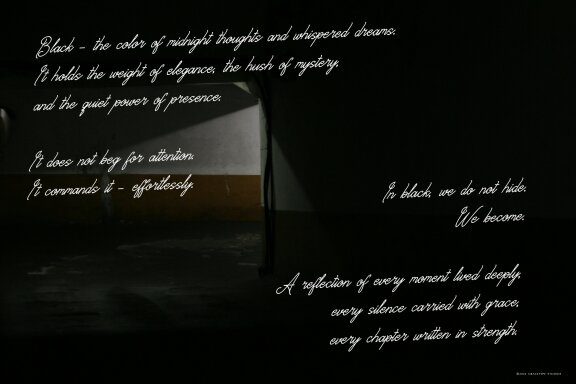 Black – the color of midnight thoughts and whispered dreams.
It holds the weight of elegance, the hush of mystery,
and the quiet power of presence.
It does not beg for attention.
It commands it – effortlessly.
In black, we do not hide.
We become.
A reflection of every moment lived deeply,
every silence carried with grace,
every chapter written in strength.